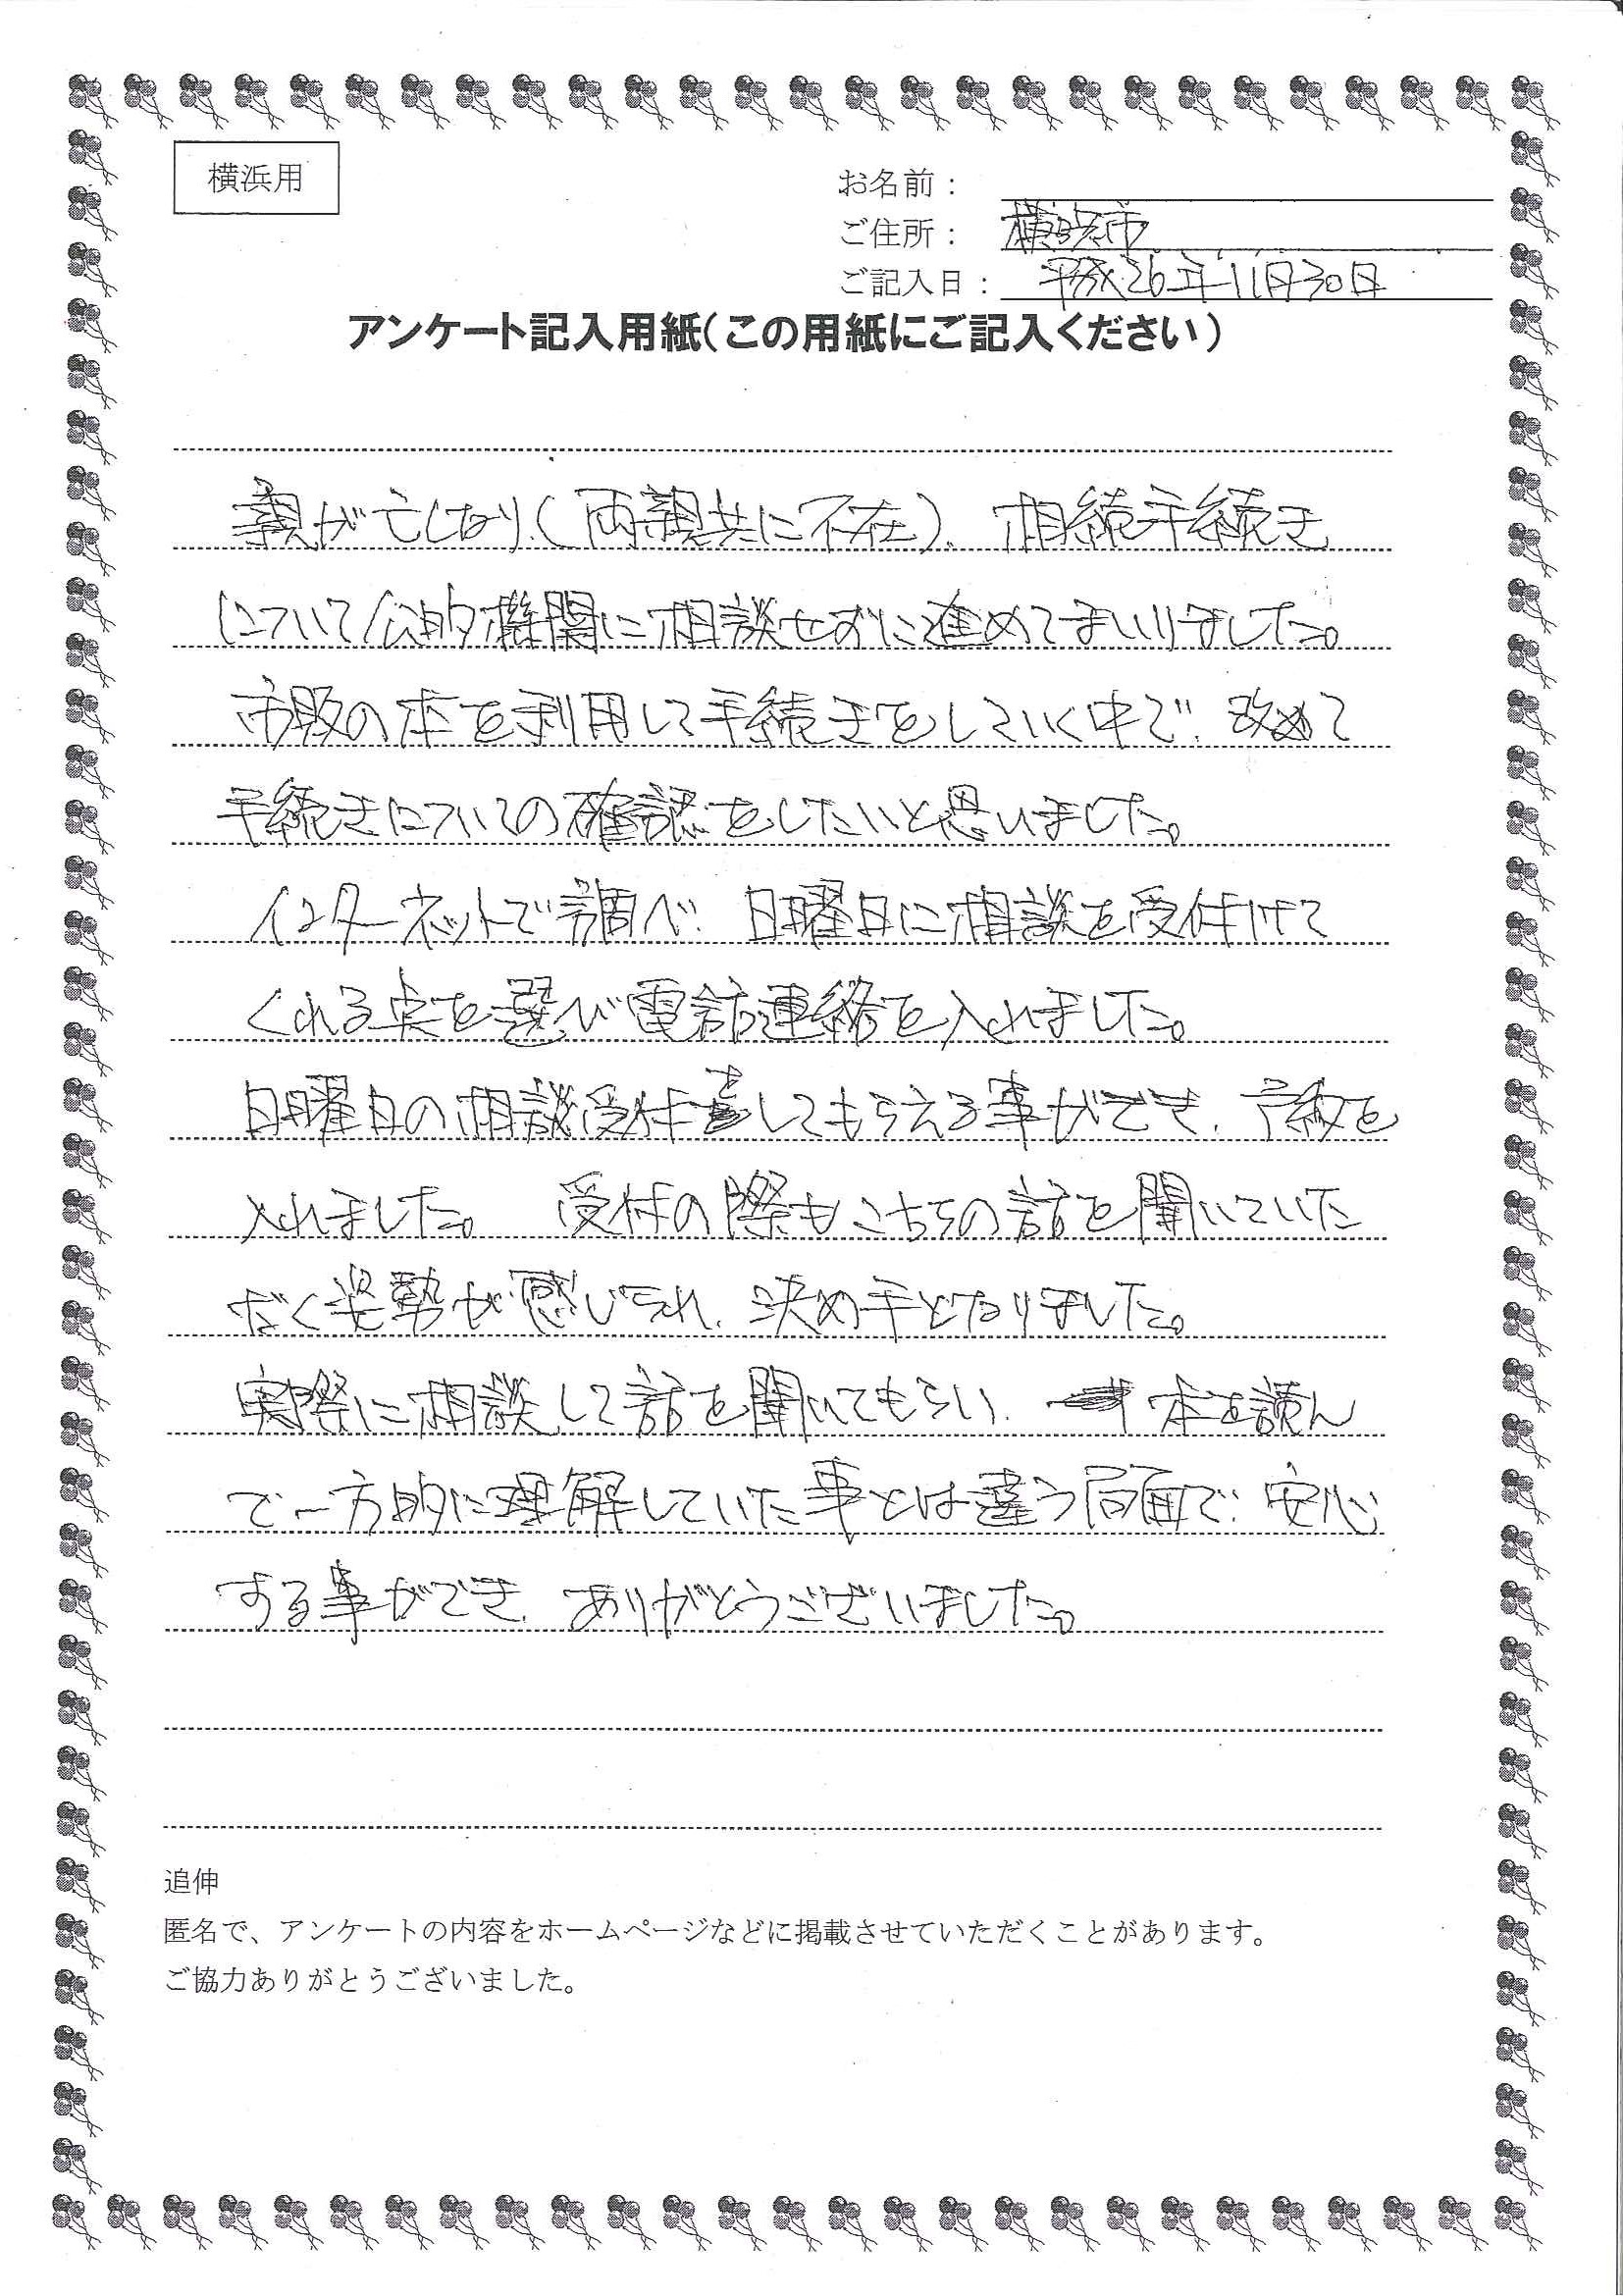 横浜用
お名前：
ご住所： 横浜市
ご記入日： 平成26年11月30日
アンケート記入用紙(この用紙にご記入ください)
親が亡しなり、(両親共に不在)、相続手続き
について公的機関に相談せずに進めてまいりました。
市販の本を利用して手続きをしていく中で、改めて
手続きについての確認をしたいと思いました。
インターネットで調べ、日曜日に相談を受付けて
くれる点を選び電話連絡を入れました。
日曜日の相談受付をしてもらえる事ができ、予約を
入れました。 受付の際もこちらの話を聞いていた
だく姿勢が感じられ、決め手となりました。
実際に相談して話を聞いてもらい、本を読ん
で一方的に理解していた事とは違う局面で、安心
する事ができ、ありがとうございました。
追伸
匿名で、アンケートの内容をホームページなどに掲載させていただくことがあります。
ご協力ありがとうございました。